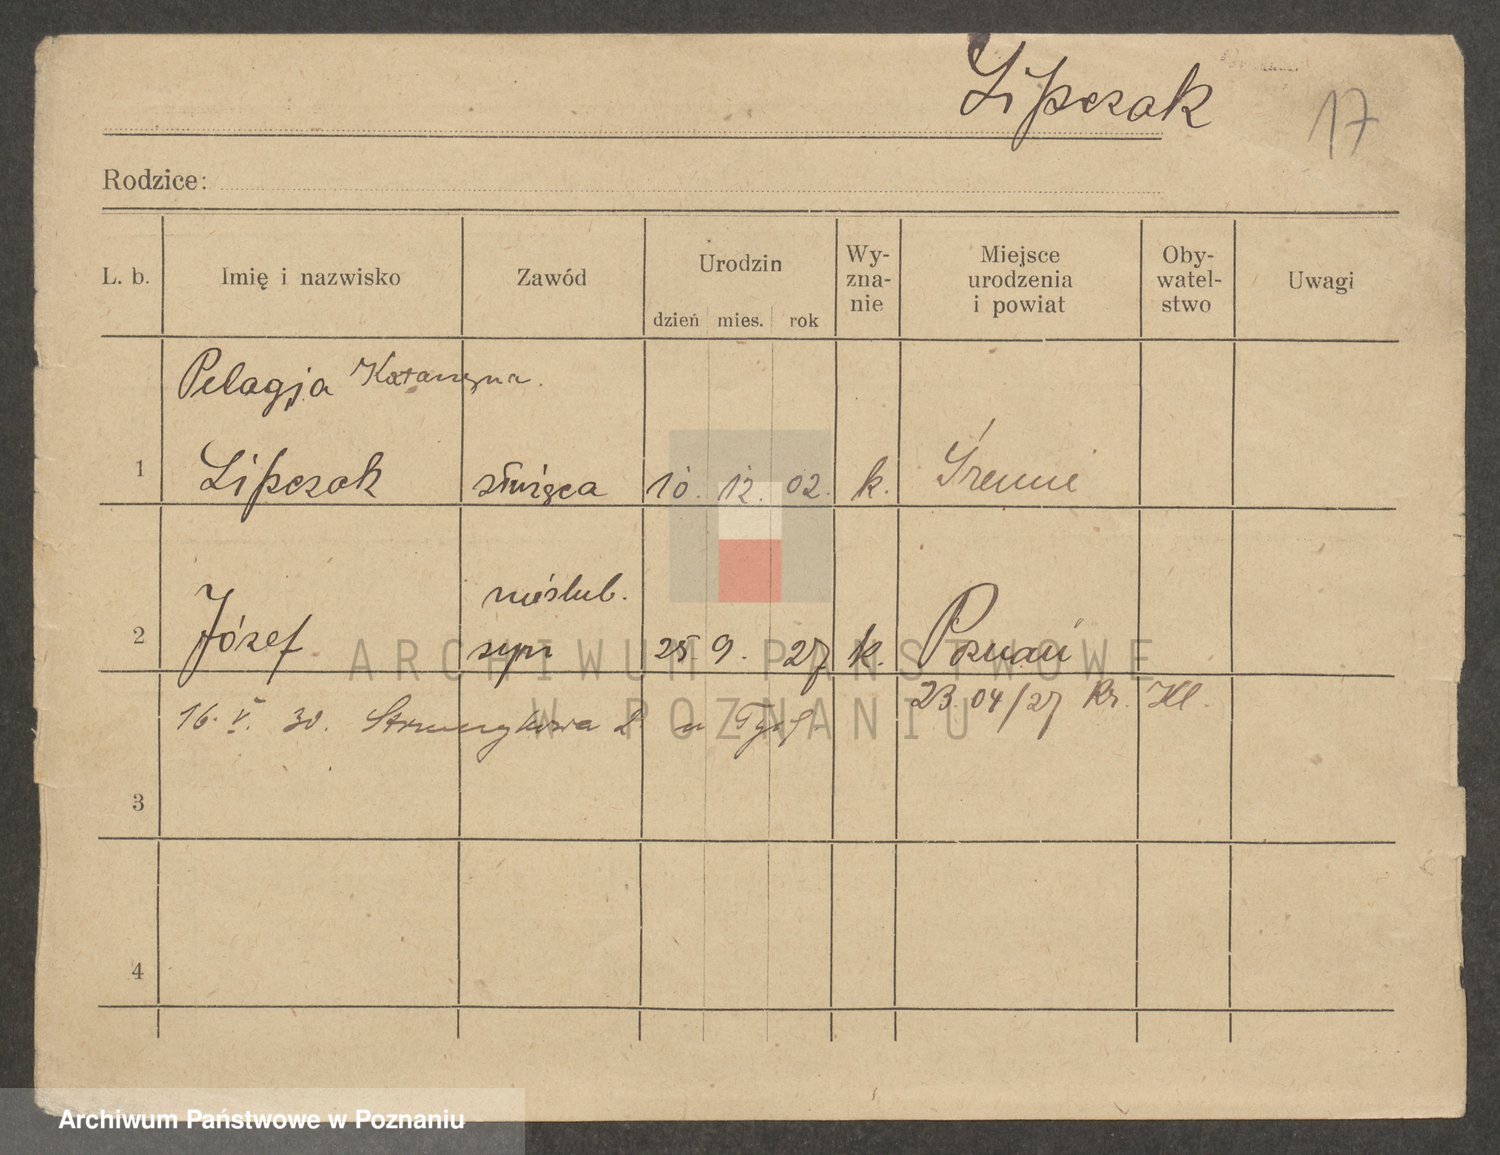 Lipczak
17
Rodzice:
L. b. Imię i nazwisko Zawód Urodzin dzień mies. rok Wy-zna-nie Miejsce urodzenia i powiat Oby-watel-stwo Uwagi
Pelagja Katarzyna.
1 Lipczak służąca 10. 12. 02. k. Śremie
nieślub.
2 Józef syn 25. 9. 27 k. Poznań
16. V. 30. 2 u 23.04/27 Kr. Kl.
3
4
ARCHIWUM PAŃSTWOWE
W POZNANIU
Archiwum Państwowe w Poznaniu